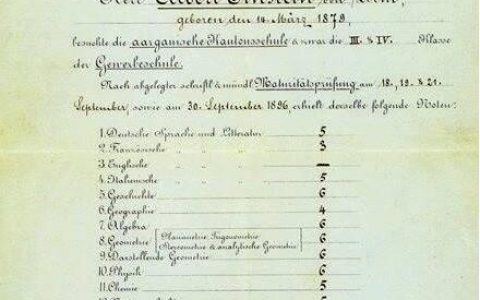 Herr Albert Einstein von Ulm,
geboren den 14. März 1879,
besuchte die aargauische Kantonsschule & zwar die III. & IV. Klasse
der Gewerbeschule.
Nach abgelegter schriftl. & mündl. Maturitätsprüfung am 18., 19. & 21.
September, sowie am 30. September 1896, erhielt derselbe folgende Noten:
1. Deutsche Sprache und Litteratur 5
2. Französische " " " 3
3. Englische " " " —
4. Italienische " " " 5
5. Geschichte 6
6. Geographie 4
7. Algebra 6
8. Geometrie Planimetrie, Trigonometrie 6
Stereometrie & analytische Geometrie 6
9. Darstellende Geometrie 6
10. Physik 6
11. Chemie 5
5